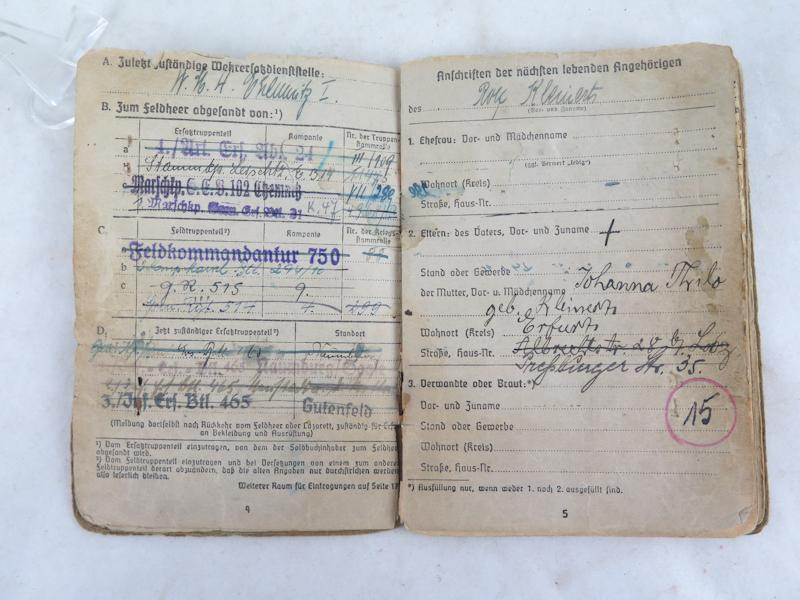 A. Zuletzt zuständige Wehrersatzdienststelle:
W. B. K. Chemnitz I.
B. Zum Feldheer abgesandt von:¹)
Ersatztruppenteil Kompanie Nr. der Truppenstammrolle
a 4./Art. Ers. Abt. 24 III/109
b
Marschkp. G.E.B. 102 Chemnitz
Marschkp. Ers. Btl. 31 K. 47
C. Feldtruppenteil²) Kompanie Nr. der Kriegsstammrolle
a Feldkommandantur 750
b
c G.R. 515 9.
D. Jetzt zuständiger Ersatztruppenteil²) Standort
3./Inf. Ers. Btl. 465 Gutenfeld
(Meldung dortselbst nach Rückkehr vom Feldheer oder Lazarett, zuständig für Ersatz
an Bekleidung und Ausrüstung)
¹) Vom Ersatztruppenteil einzutragen, von dem der Soldbuchinhaber zum Feldheer
abgesandt wird.
²) Vom Feldtruppenteil einzutragen und bei Versetzungen von einem zum anderen
Feldtruppenteil derart abzuändern, daß die alten Angaben nur durchstrichen werden,
also leserlich bleiben.
Weiterer Raum für Eintragungen auf Seite 17
4
Anschriften der nächsten lebenden Angehörigen
des Rolf Kleinert
(Vor- und Zuname)
1. Ehefrau: Vor- und Mädchenname
(ggf. Vermerk „ledig")
Wohnort (Kreis)
Straße, Haus-Nr.
2. Eltern: des Vaters, Vor- und Zuname +
Stand oder Gewerbe
der Mutter, Vor- u. Mädchenname Johanna Thilo
geb. Kleinert
Wohnort (Kreis) Erfurt
Straße, Haus-Nr.
Preßburger Str. 35.
3. Verwandte oder Braut:*)
Vor- und Zuname
Stand oder Gewerbe
15
Wohnort (Kreis)
Straße, Haus-Nr.
*) Ausfüllung nur, wenn weder 1. noch 2. ausgefüllt sind.
5